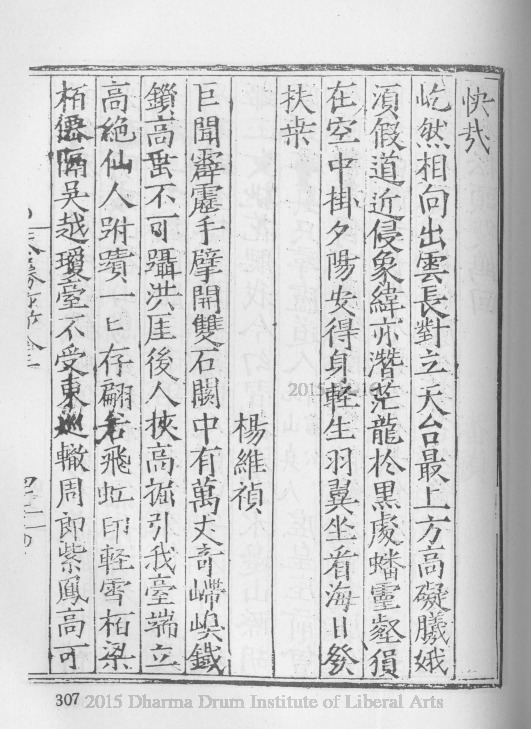 快哉
屹然相向出雲長對立天台最上方高礙朦娥
須假道近侵象緯亦潛茫龍於黑處蟠靈壑猿
在空中掛夕陽安得身輕生羽翼坐看海日發
扶桒
楊維禎
巨聞霹靂手擘開雙石闕中有萬丈奇𡾊嶼鐵
鎖高垂不可躡洪厓後人挾高𢭏引我臺端立
高絶仙人跗蹟一匕存翩若飛虹印輕雪栢梁
栢僊隔吳越瓊臺不受東巡轍周郎紫鳳高可
307 2015 Dharma Drum Institute of Liberal Arts